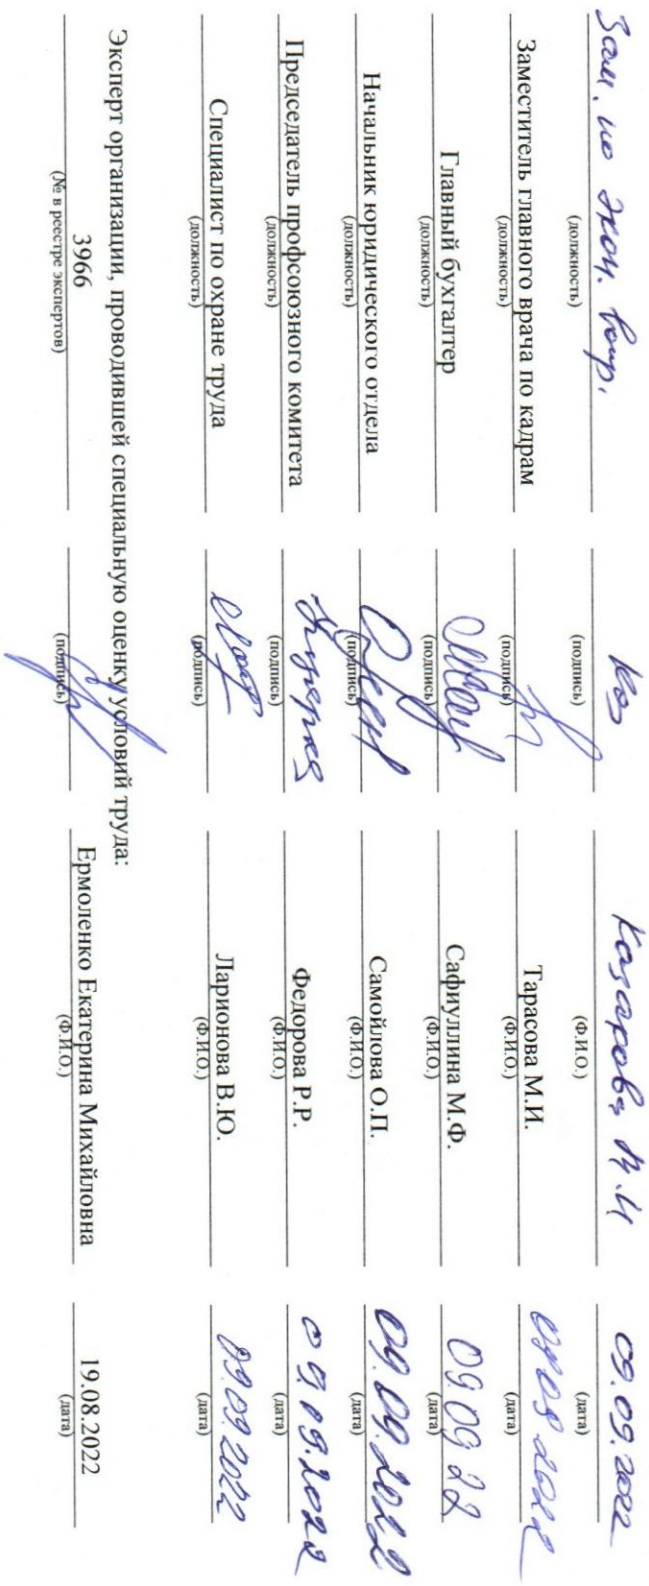 Зам. по экон. вопр. Каз Казарова М.И 09.09.2022
(должность) (подпись) (Ф.И.О.) (дата)
Заместитель главного врача по кадрам Тарасова М.И.
(должность) (подпись) (Ф.И.О.) (дата)
Главный бухгалтер Сафиуллина М.Ф. 09 09 22
(должность) (подпись) (Ф.И.О.) (дата)
Начальник юридического отдела Самойлова О.П. 09.09.2022
(должность) (подпись) (Ф.И.О.) (дата)
Председатель профсоюзного комитета Федорова Р.Р. 09.09.2022
(должность) (подпись) (Ф.И.О.) (дата)
Специалист по охране труда Ларионова В.Ю. 09.09.2022
(должность) (подпись) (Ф.И.О.) (дата)
Эксперт организации, проводившей специальную оценку условий труда:
3966 Ермоленко Екатерина Михайловна 19.08.2022
(№ в реестре экспертов) (подпись) (Ф.И.О.) (дата)